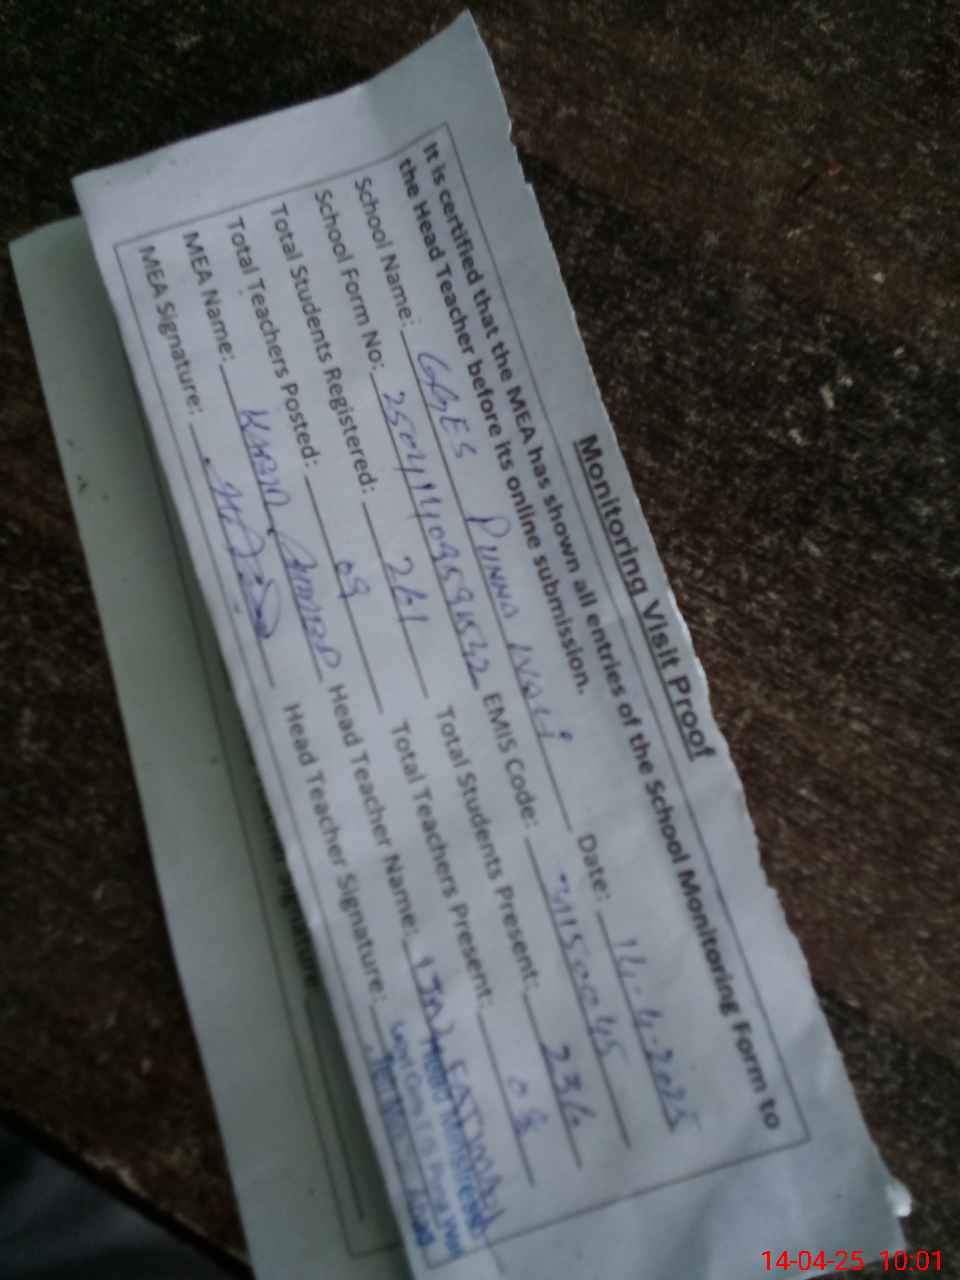 Monitoring Visit Proof
It is certified that the MEA has shown all entries of the School Monitoring Form to
the Head Teacher before its online submission.
School Name: GGES PUNNA WALI Date: 14-4-2025
School Form No: EMIS Code: 31500045
Total Students Registered: 241 Total Students Present: 236
Total Teachers Posted: 09 Total Teachers Present: 08
MEA Name: Head Teacher Name: FATIMA
MEA Signature: Head Teacher Signature:
Head
Signature
14-04-25 10:01